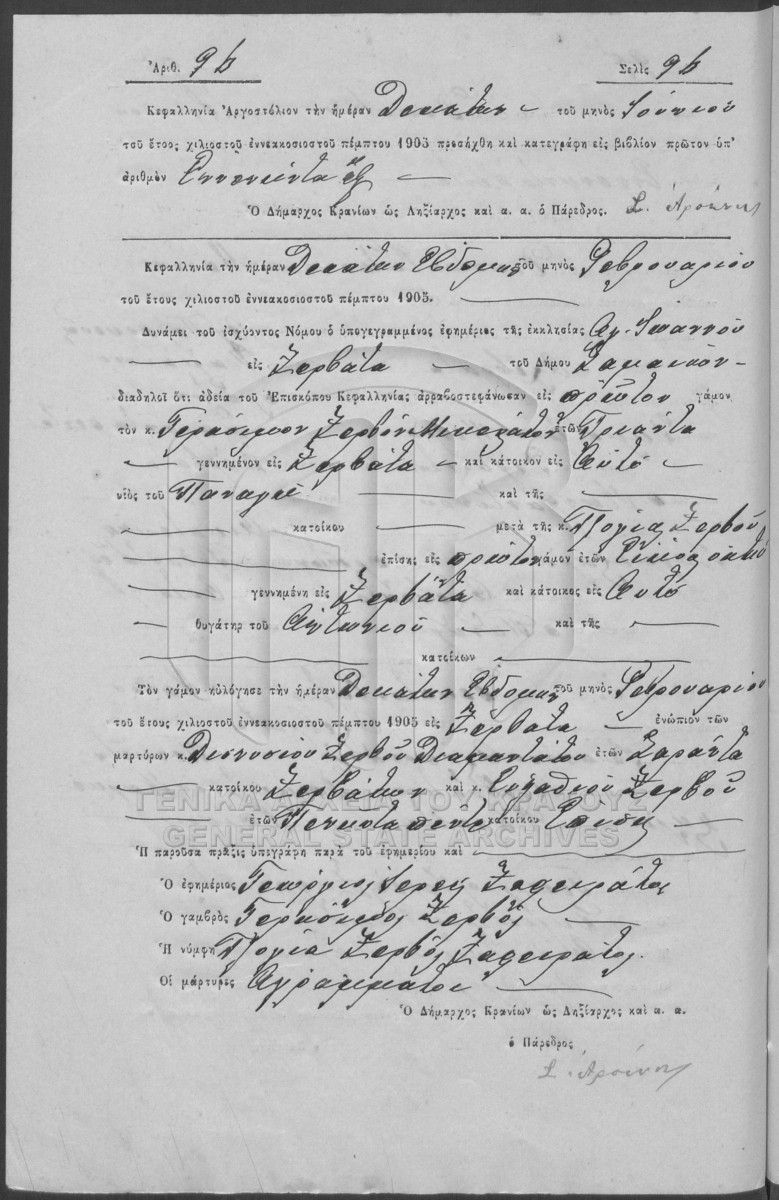 Ἀριθ. 96 Σελὶς 96
Κεφαλληνία Ἀργοστόλιον τὴν ἡμέραν Δεκάτην τοῦ μηνὸς Ἰουνίου
τοῦ ἔτους χιλιοστοῦ ἐννεακοσιοστοῦ πέμπτου 1905 προσήχθη καὶ κατεγράφη εἰς βιβλίον πρῶτον ὑπ'
ἀριθμὸν Ἐννενῆντα ἕξ
Ὁ Δήμαρχος Κρανίων ὡς Ληξίαρχος καὶ α. α. ὁ Πάρεδρος.
Κεφαλληνία τὴν ἡμέραν Δεκάτην Εβδομην τοῦ μηνὸς Φεβρουαρίου
τοῦ ἔτους χιλιοστοῦ ἐννεακοσιοστοῦ πέμπτου 1905.
Δυνάμει τοῦ ἰσχύοντος Νόμου ὁ ὑπογεγραμμένος ἐφημέριος τῆς ἐκκλησίας Αγ. Ιωαννου
εἰς Ζερβάτα τοῦ Δήμου Σαμαίων
διαδηλοῖ ὅτι ἀδείᾳ τοῦ Ἐπισκόπου Κεφαλληνίας ἀρραβοστεφάνωσαν εἰς πρῶτον γάμον
τὸν κ. Γεράσιμον Ζερβὸν ἐτῶν Τριάντα
γεννημένον εἰς Ζερβάτα καὶ κάτοικον εἰς Αὐτό
υἱὸς τοῦ Παναγῆ καὶ τῆς
κατοίκου μετὰ τῆς κ. Ζερβοῦ
ἐπίσης εἰς πρῶτον γάμον ἐτῶν Εἴκοσι οκτώ
γεννημένη εἰς Ζερβάτα καὶ κάτοικος εἰς Αυτό
θυγάτηρ τοῦ Αντωνίου καὶ τῆς
κατοίκων
Τὸν γάμον ηὐλόγησε τὴν ἡμέραν Δεκάτην Εβδομην τοῦ μηνὸς Φεβρουαρίου
τοῦ ἔτους χιλιοστοῦ ἐννεακοσιοστοῦ πέμπτου 1905 εἰς Ζερβάτα ἐνώπιον τῶν
μαρτύρων κ. Διονυσίου Ζερβοῦ Διαμαντάτου ἐτῶν Σαράντα
κατοίκου Ζερβάτων καὶ κ. Ζερβοῦ
ἐτῶν Πενῆντα πέντε κατοίκου Επίσης
ΓΕΝΙΚΑ ΑΡΧΕΙΑ ΤΟΥ ΚΡΑΤΟΥΣ
GENERAL STATE ARCHIVES
Ἡ παροῦσα πρᾶξις ὑπεγράφη παρὰ τοῦ ἐφημερίου καὶ
Ὁ ἐφημέριος Γεώργιος Ιερεὺς Ζαφειράτος
Ὁ γαμβρὸς Γεράσιμος Ζερβός
Ἡ νύμφη Ζερβός Ζαφειράτος
Οἱ μάρτυρες Αγράμματοι
Ὁ Δήμαρχος Κρανίων ὡς Ληξίαρχος καὶ α. α.
ὁ Πάρεδρος